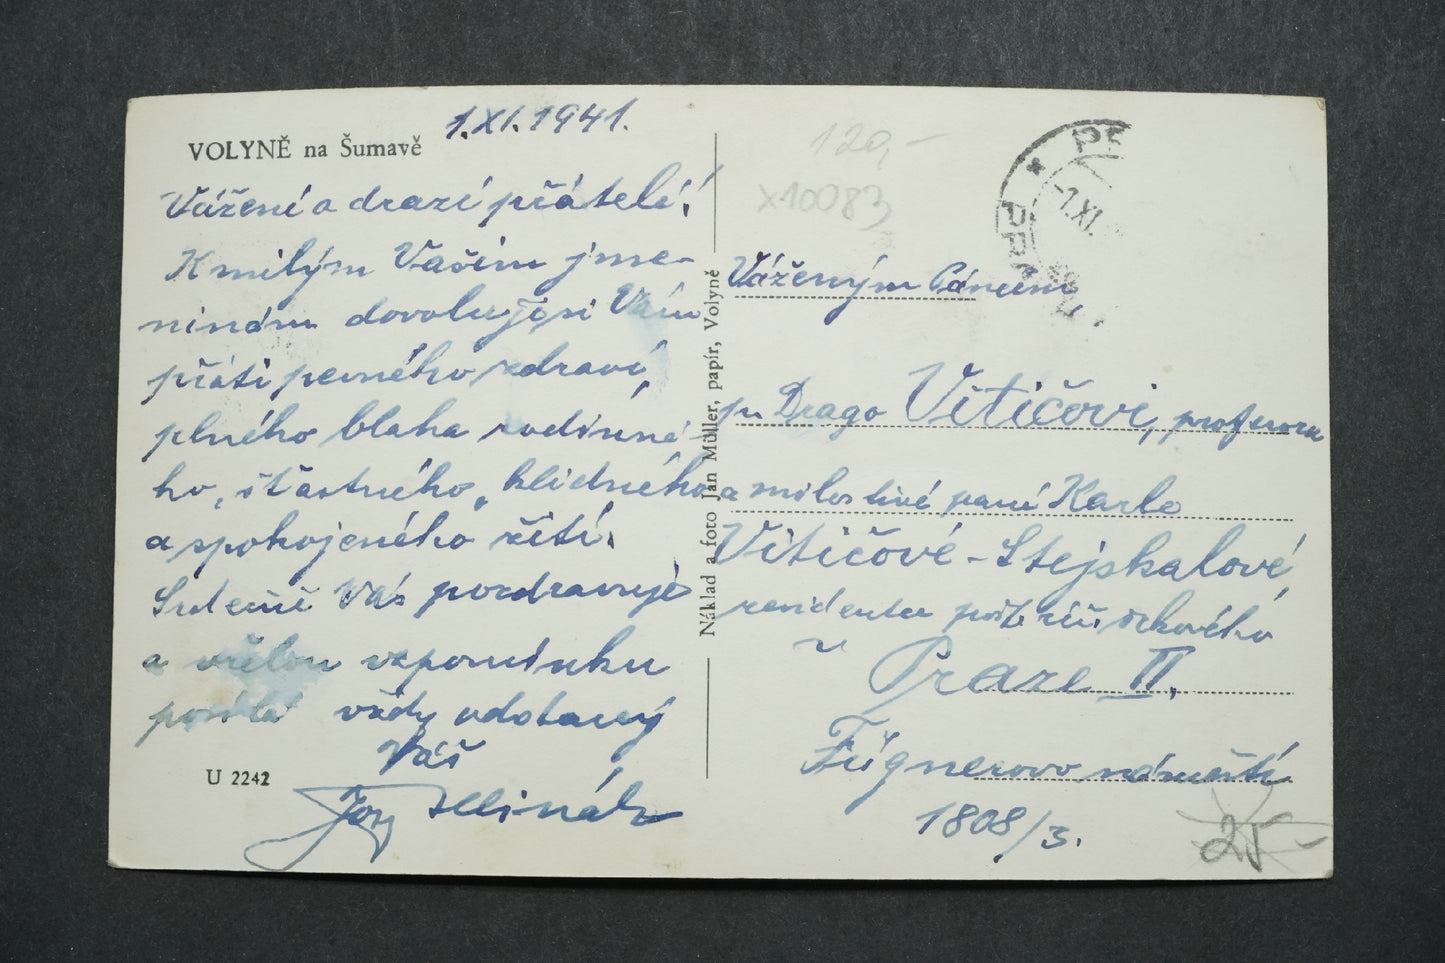 VOLYNĚ na Šumavě
1.XI.1941.
Vážení a drazí přátelé!
K milým Vašim jme-
ninám dovoluji si Vám
přáti pevného zdraví,
plného blaha rodinné-
ho, šťastného, klidného
a spokojeného žití.
Srdečně Vás pozdravuje
a vřelou vzpomínku
posílá vždy oddaný
Váš
U 2242
Náklad a foto Jan Müller, papír, Volyně
120,-
X10083
1.XI.
Váženým Pánům,
Drago Vitičovi, profesoru
a milostivé paní Karle
Vitičové-Stejskalové
v Praze II.
Fügnerovo náměstí
1808/3.
25-